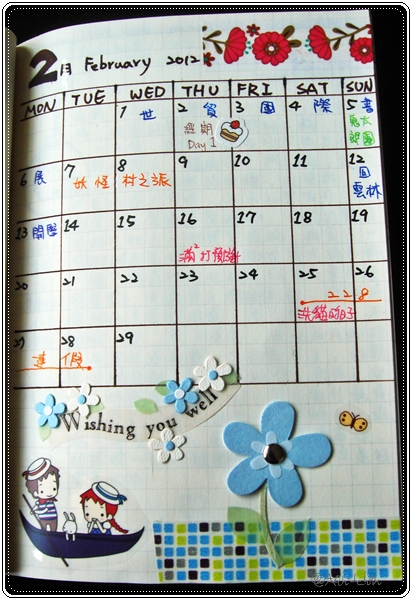 2月 February 2012
MON TUE WED THU FRI SAT SUN
1 世 2 貿 3 國 4 際 5 書
經期
Day 1
6 展 7 8 9 10 11 12
妖怪村之旅
回
雲林
13 開學 14 15 16 17 18 19
20 21 22 23 24 25 26
228
洗貓的日子
27 28 29
連假
Wishing you well